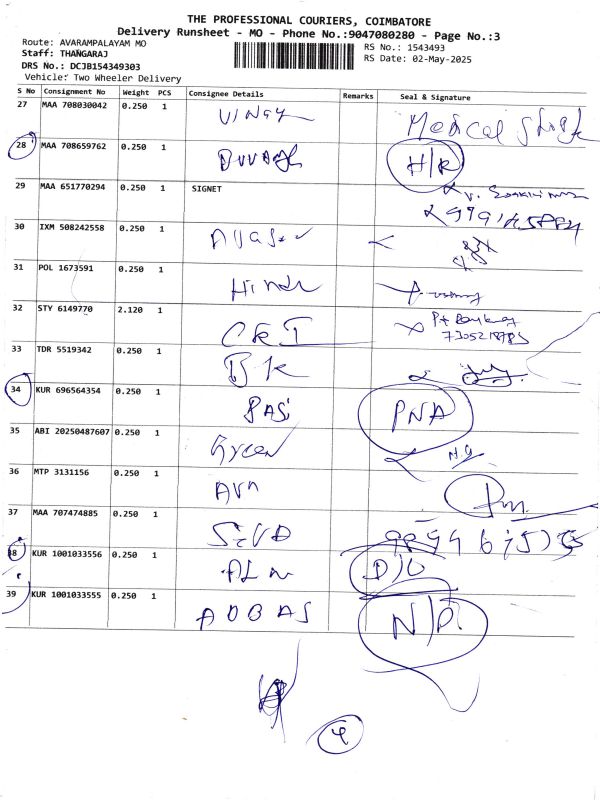 THE PROFESSIONAL COURIERS, COIMBATORE
Delivery Runsheet - MO - Phone No.:9047080280 - Page No.:3
Route: AVARAMPALAYAM MO
Staff: THANGARAJ
DRS No.: DCJB154349303
Vehicle: Two Wheeler Delivery
RS No.: 1543493
RS Date: 02-May-2025
S No Consignment No Weight PCS Consignee Details Remarks Seal & Signature
27 MAA 708030042 0.250 1 Vinay Medical
28 MAA 708659762 0.250 1 H/R
29 MAA 651770294 0.250 1 SIGNET
30 IXM 508242558 0.250 1
31 POL 1673591 0.250 1
32 STY 6149770 2.120 1 CKT
33 TDR 5519342 0.250 1 BK
34 KUR 696564354 0.250 1 BASi PNA
35 ABI 20250487607 0.250 1 Green
36 MTP 3131156 0.250 1
37 MAA 707474885 0.250 1
38 KUR 1001033556 0.250 1 D/L
39 KUR 1001033555 0.250 1 N/P.
4